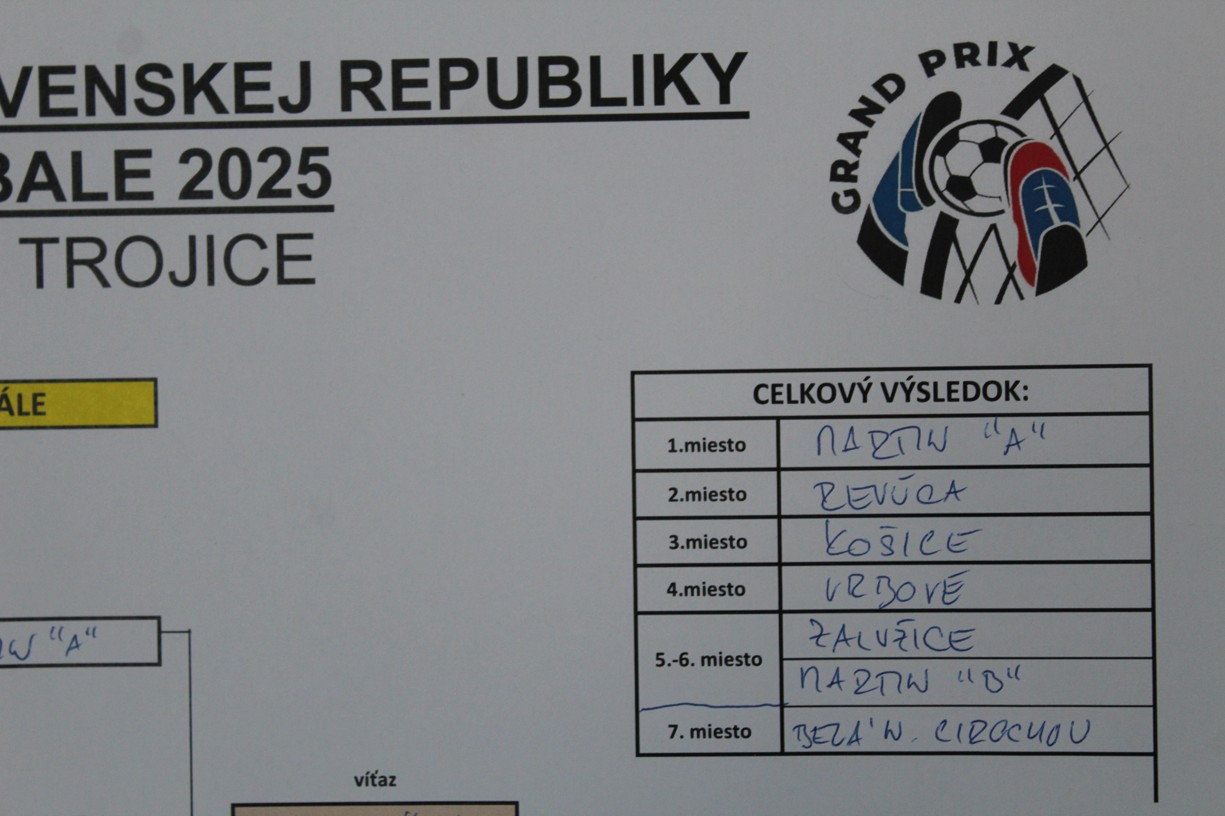 VENSKEJ REPUBLIKY
BALE 2025
TROJICE
GRAND PRIX
ÁLE
CELKOVÝ VÝSLEDOK:
1.miesto MARTIN "A"
2.miesto REVÚCA
3.miesto KOŠICE
4.miesto VRBOVÉ
5.-6. miesto ZALUŽICE
MARTIN "B"
7. miesto BELÁ N. CIROCHOU
"A"
víťaz